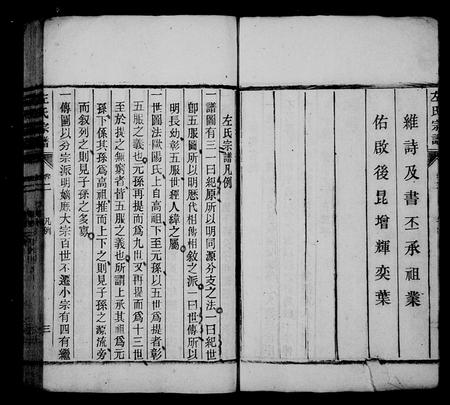 左氏宗譜
維詩及書丕承祖業
佑啟後昆增輝奕葉
左氏宗譜凡例
一譜圖有三一曰紀原所以明同源分支之法一曰紀世
卽五服圖所以明歷代相傳相敘之派一曰世傳所以
明長幼彰五服世經人緯之屬
一世圖法歐陽氏上自高祖下至元孫以五世為提者彰
五服之義也元孫再提而為九世又再提而為十三世
至於提之無窮者皆五服之義也所謂上承其祖為元
孫下係其孫為高祖推而上下之則見子孫之源流旁
而叙列之則見子孫之多寡
一傳圖以分宗派明嫡庶大宗百世不遷小宗有四有繼
左氏宗譜
凡例
三